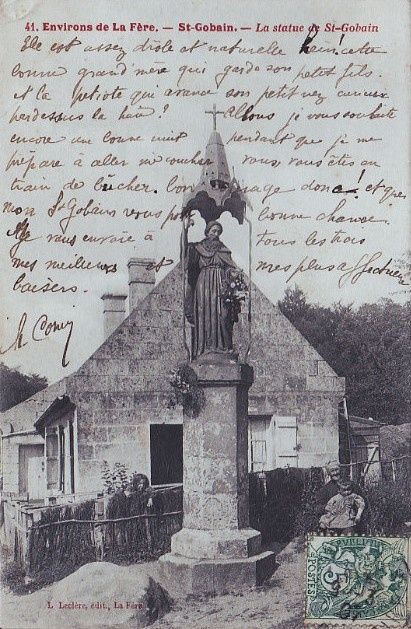 41. Environs de La Fère. — St-Gobain. — La statue de St-Gobain
Elle est assez drôle et naturelle hein! cette
bonne grand'mère qui garde son petit fils.
et la petiote qui avance son petit nez curieux
par dessus la haie! Allons je vous souhaite
encore une bonne nuit pendant que je me
prépare à aller me coucher vous, vous êtes en
train de bûcher. bon courage donc! et que
mon St Gobain vous porte bonne chance.
Je vous envoie à tous les trois
mes meilleurs et mes plus affectueux
baisers.
REPUBLIQUE
POSTES
5
L. Leclère, édit., La Fère